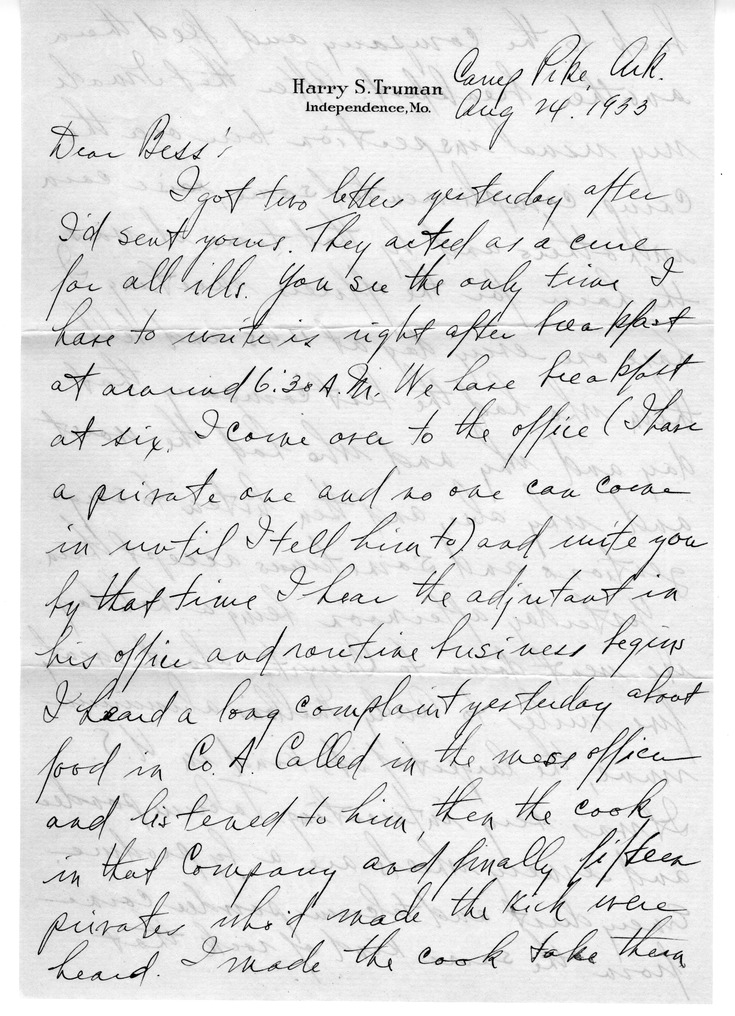 Harry S. Truman
Independence, Mo.
Camp Pike, Ark.
Aug 24, 1933
Dear Bess:
I got two letters yesterday after
I'd sent yours. They acted as a cure
for all ills. You see the only time I
have to write is right after breakfast
at around 6:30 A.M. We have breakfast
at six. I come over to the office (I have
a private one and no one can come
in until I tell him to) and write you
by that time I hear the adjutant in
his office and routine business begins
I heard a long complaint yesterday about
food in Co. A. Called in the mess officer
and listened to him, then the cook
in that Company and finally fifteen
privates who'd made the kick were
heard. I made the cook take them